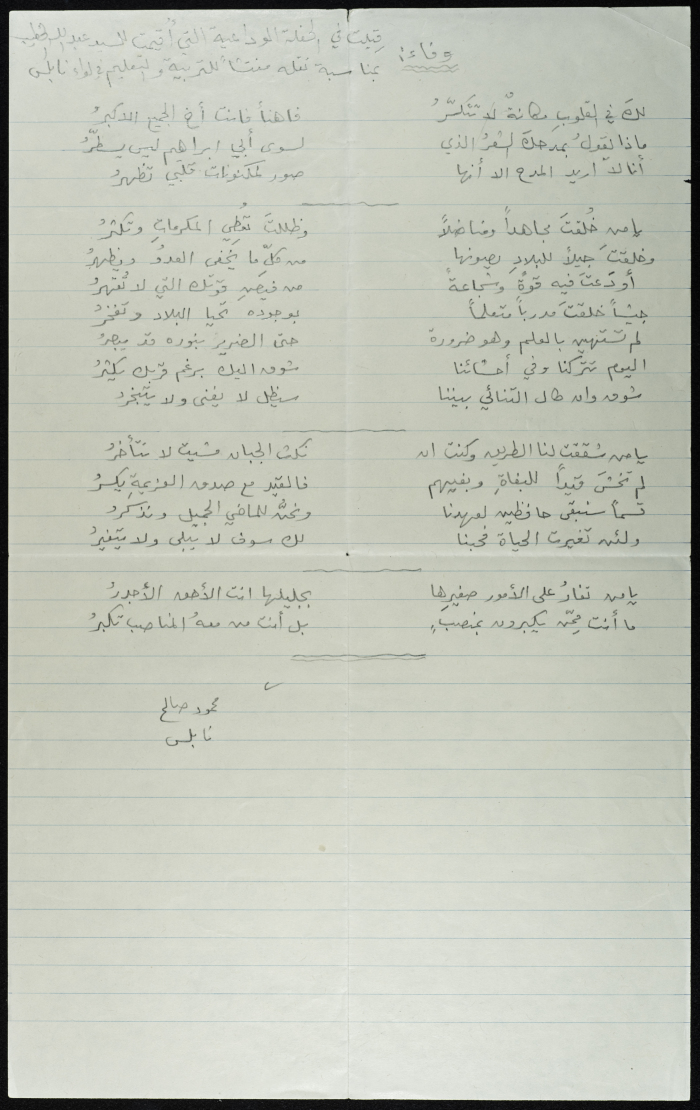 وفاء:
قيلت في الحفلة الوداعية التي أقيمت للسيد عبد الله الخطيب
بمناسبة نقله مفتشاً للتربية والتعليم في لواء نابلس
لك في القلوب مكانةٌ لا تتكسَّرُ فاهنأ فانت أخ الجميع الاكبرُ
ماذا نقولُ بمدحك الشعرُ الذي لسوى أبي ابراهيم ليس يسطّرُ
أنا لا اريد المدح الا أنها صور لمكنونات قلبي تظهرُ
يا من خُلقتَ مجاهداً ومناضلاً وظللتَ تعُطي المكرماتِ وتكثرُ
وخلقتَ جيلاً للبلادِ يصونها من كلّ ما يخفى العدوُّ ويظهرُ
أودَعتَ فيه قوةً وشجاعةً من فيضِ قوتك التي لا تُقهرُ
جيشاً خلقتَ مدرباً متعلماً بوجوده تحيا البلاد وتفخرُ
لم تستهين بالعلم وهو ضرورة حتى الضرير بنوره قد يبصرُ
اليوم تتركنا وفي أحشائنا شوق اليك برغم قربك يكثرُ
شوق وان طال التنائي بيننا سيظل لا يفنى ولا يتبخرُ
يا من شققت لنا الطريق وكنت ان نكث الجبان مشيت لا تتأخرُ
لم تخشَ قيداً للبغاةِ وبغيهم فالقيد مع صدق العزيمةِ يكسرُ
قسماً سنبقى حافظين لعهدنا ونحنُّ للماضي الجميل ونذكرُ
ولئن تغيرت الحياة فحبنا لك سوف لا يبلى ولا يتغيرُ
يا من تغارُ على الأمور صغيرِها بجليلها انت الأحق الأجدرُ
ما أنت ممّن يكبرون بمنصبٍ بل أنت من معهُ المناصب تكبرُ
محمود صالح
نابلس